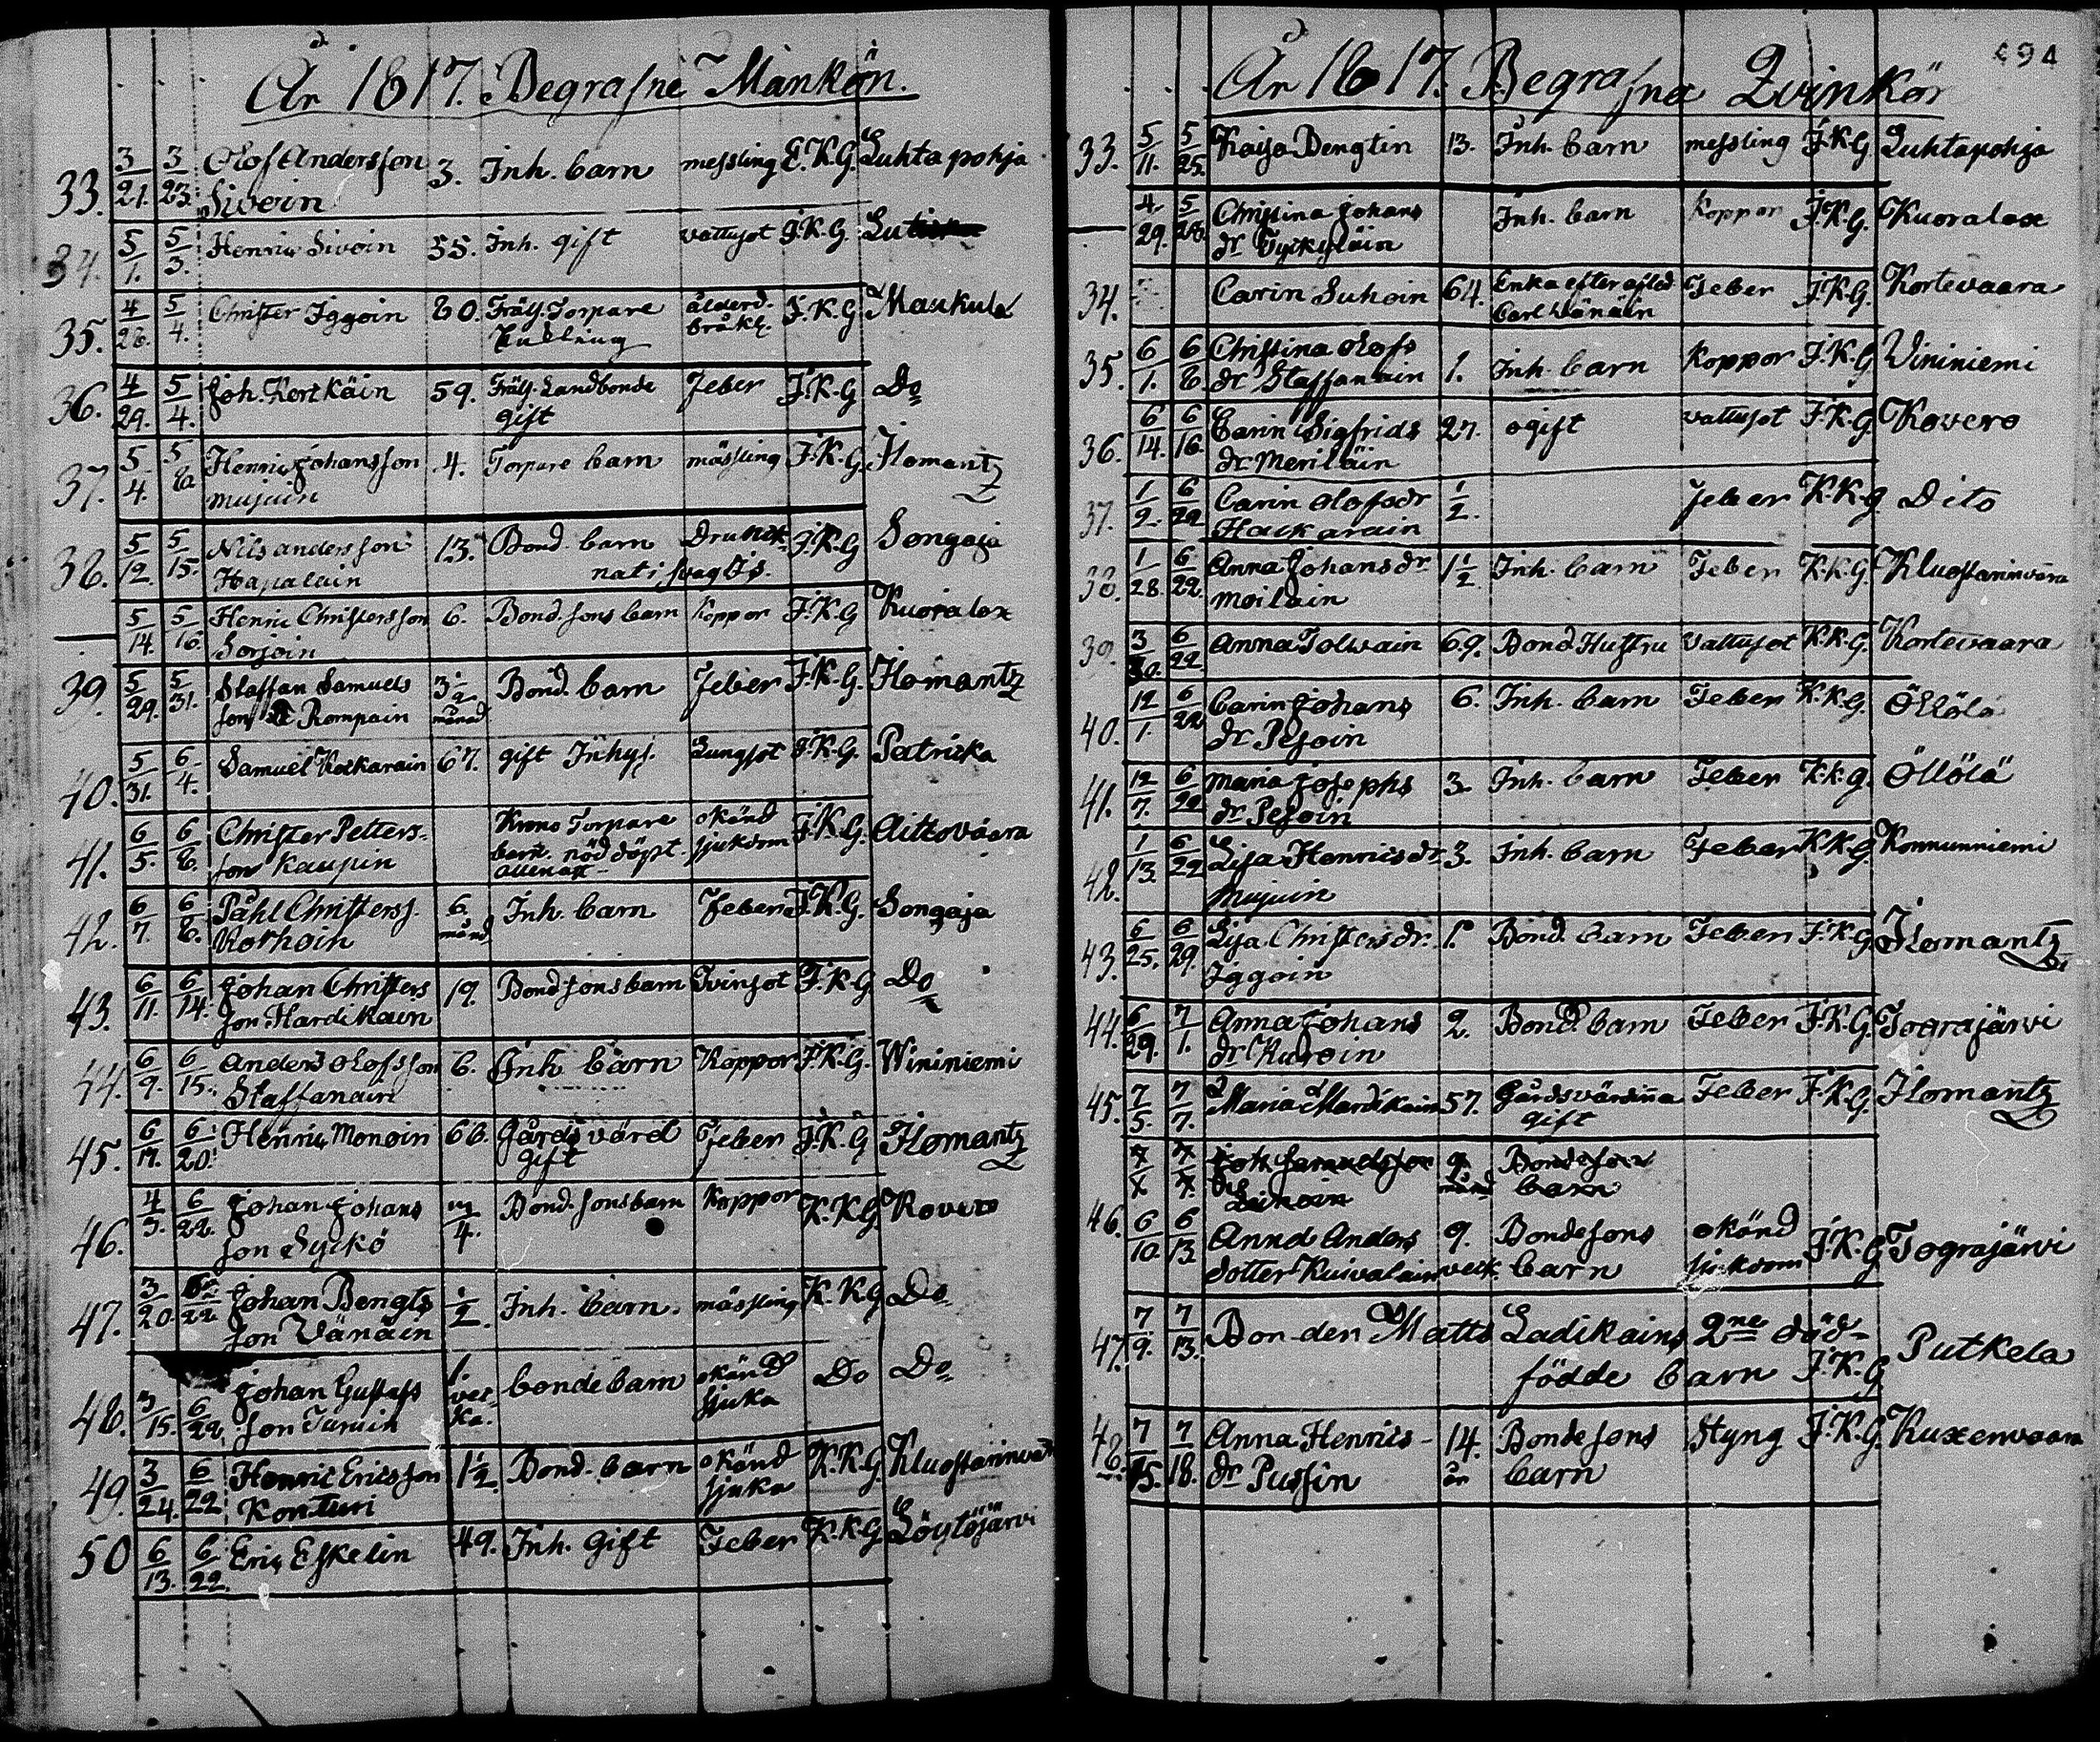 År 1817. Begrafne Mankön.
33. 3/21. 3/23. Olof Andersson 3. Inh. barn messling I.K.G. Luhtapohja
Sivoin
34. 5/1. 5/3. Henric Sivoin 55. Inh. gift vattusot I.K.G.
35. 4/28. 5/4. Christer Iggoin 80. Fräls. Torpare ålderd. I.K.G. Maukula
bräkl.
36. 4/29. 5/4. Joh. Kortkäin 59. Fräls. Landbonde Feber I.K.G Do
gift
37. 5/4. 5/8. Henric Johansson 4. Torpare barn mässling I.K.G. Ilomantz
Mujuin
38. 5/12. 5/15. Nils Andersson 13. Bond. barn Drunk- I.K.G Songaja
Hapalain nat i
— 5/14. 5/16. Henric Christersson 6. Bond. sons barn Koppor I.K.G Kuoralax
Sorjoin
39. 5/29. 5/31. Staffan Samuels 3 1/2 Bond. barn Feber I.K.G. Ilomantz
son Rompain månad
40. 5/31. 6/4. Samuel Kockarain 67. gift Inhys. Lungsot I.K.G. Patricka
41. 6/5. 6/8. Christer Petters- Krono Torpare okänd I.K.G. Aittovaara
son Kaupin barn. nöddöpt sjukdom
allenast
42. 6/7. 6/8. Påhl Christerss. 6. Inh. barn Feber I.K.G. Songaja
Korhoin månd
43. 6/11. 6/14. Johan Christers 19. Bond sons barn Tvinsot I.K.G Do
son Hardikain
44. 6/9. 6/15. Anders Olofsson 6. Inh barn Koppor I.K.G. Wininiemi
Staffanain
45. 6/17. 6/20. Henric Monoin 66. Gårds värd Feber I.K.G Ilomantz
gift
46. 4/3. 6/22. Johan Johans 3/4. Bond. sons barn Koppor K.K.G Kovero
son Syckö
47. 3/20. 6/22 Johan Bengts 1/2. Inh. barn. mässling K.K.G Do
son Vänäin
48. 3/15. 6/22. Johan Gustafs 1. bonde barn okänd Do Do
son vec- sjuka
ka.
49. 3/24. 6/22. Henric Ericsson 1 1/2. Bond. barn okänd K.K.G Kluostarinva
Konturi sjuka
50 6/13. 6/22. Eric Eskelin 49. Inh. Gift Feber K.K.G. Löytöjärvi
494
År 1817. Begrafna Qvinkön
33. 5/11. 5/25. Kaisa Bengtin 13. Inh. barn messling I.K.G Luhtapohja
— 4/29. 5/28. Christina Johans Inh. barn Koppor I.K.G. Kuoralax
dr Tyckyläin
34. Carin Suhoin 64. Enka efter afled. Feber I.K.G. Kortevaara
Carl Wänäin
35. 6/1. 6/8. Christina Olofs 1. Inh. barn Koppor I.K.G Vininiemi
dr Staffanain
36. 6/14. 6/16. Carin Sigfrids 27. ogift vattusot I.K.G. Kovero
dr Meriläin
37. 1/2. 6/22 Carin Olofsdr 1/2. Feber K.K.G Dito
Hackarain
38. 1/28. 6/22. Anna Johansdr 1 1/2 Inh. barn Feber K.K.G. Kluostarinvaara
Moilain
39. 3/30. 6/22 Anna Tolwain 69. Bond. Hustru Vattusot K.K.G. Kortevaara
40. 12/1. 6/22 Carin Johans 6. Inh. barn Feber K.K.G. Öllölä
dr Pesoin
41. 12/7. 6/22 Maria Josephs 3. Inh. barn Feber K.K.G. Öllölä
dr Pesoin
42. 1/13. 6/22 Lisa Henricsdr 3. Inh. barn Feber K.K.G. Konnunniemi
Mujuin
43. 6/25. 6/29. Lisa Christersdr. 1. Bond. barn Feber I.K.G. Ilomantz
Iggoin
44. 6/29. 7/1. Anna Johans 2. Bond. barn Feber I.K.G. Tograjärvi
dr Kuroin
45. 7/5. 7/7. Maria Mardikain 57. Gårdsvärdinna Feber I.K.G. Ilomantz
gift
Joh. Samuelsson Bondeson
barn
46. 6/10. 6/13 Anna Anders 9. Bondesons okänd I.K.G Tograjärvi
dotter Kuivalain veck. barn sjukdom
47. 7/9. 7/13. Bonden Matts Ladikains 2ne död-
födde barn I.K.G Putkela
48. 7/15. 7/18. Anna Henrics- 14. Bondesons Styng I.K.G. Kuxenvaara
dr Pussin år barn